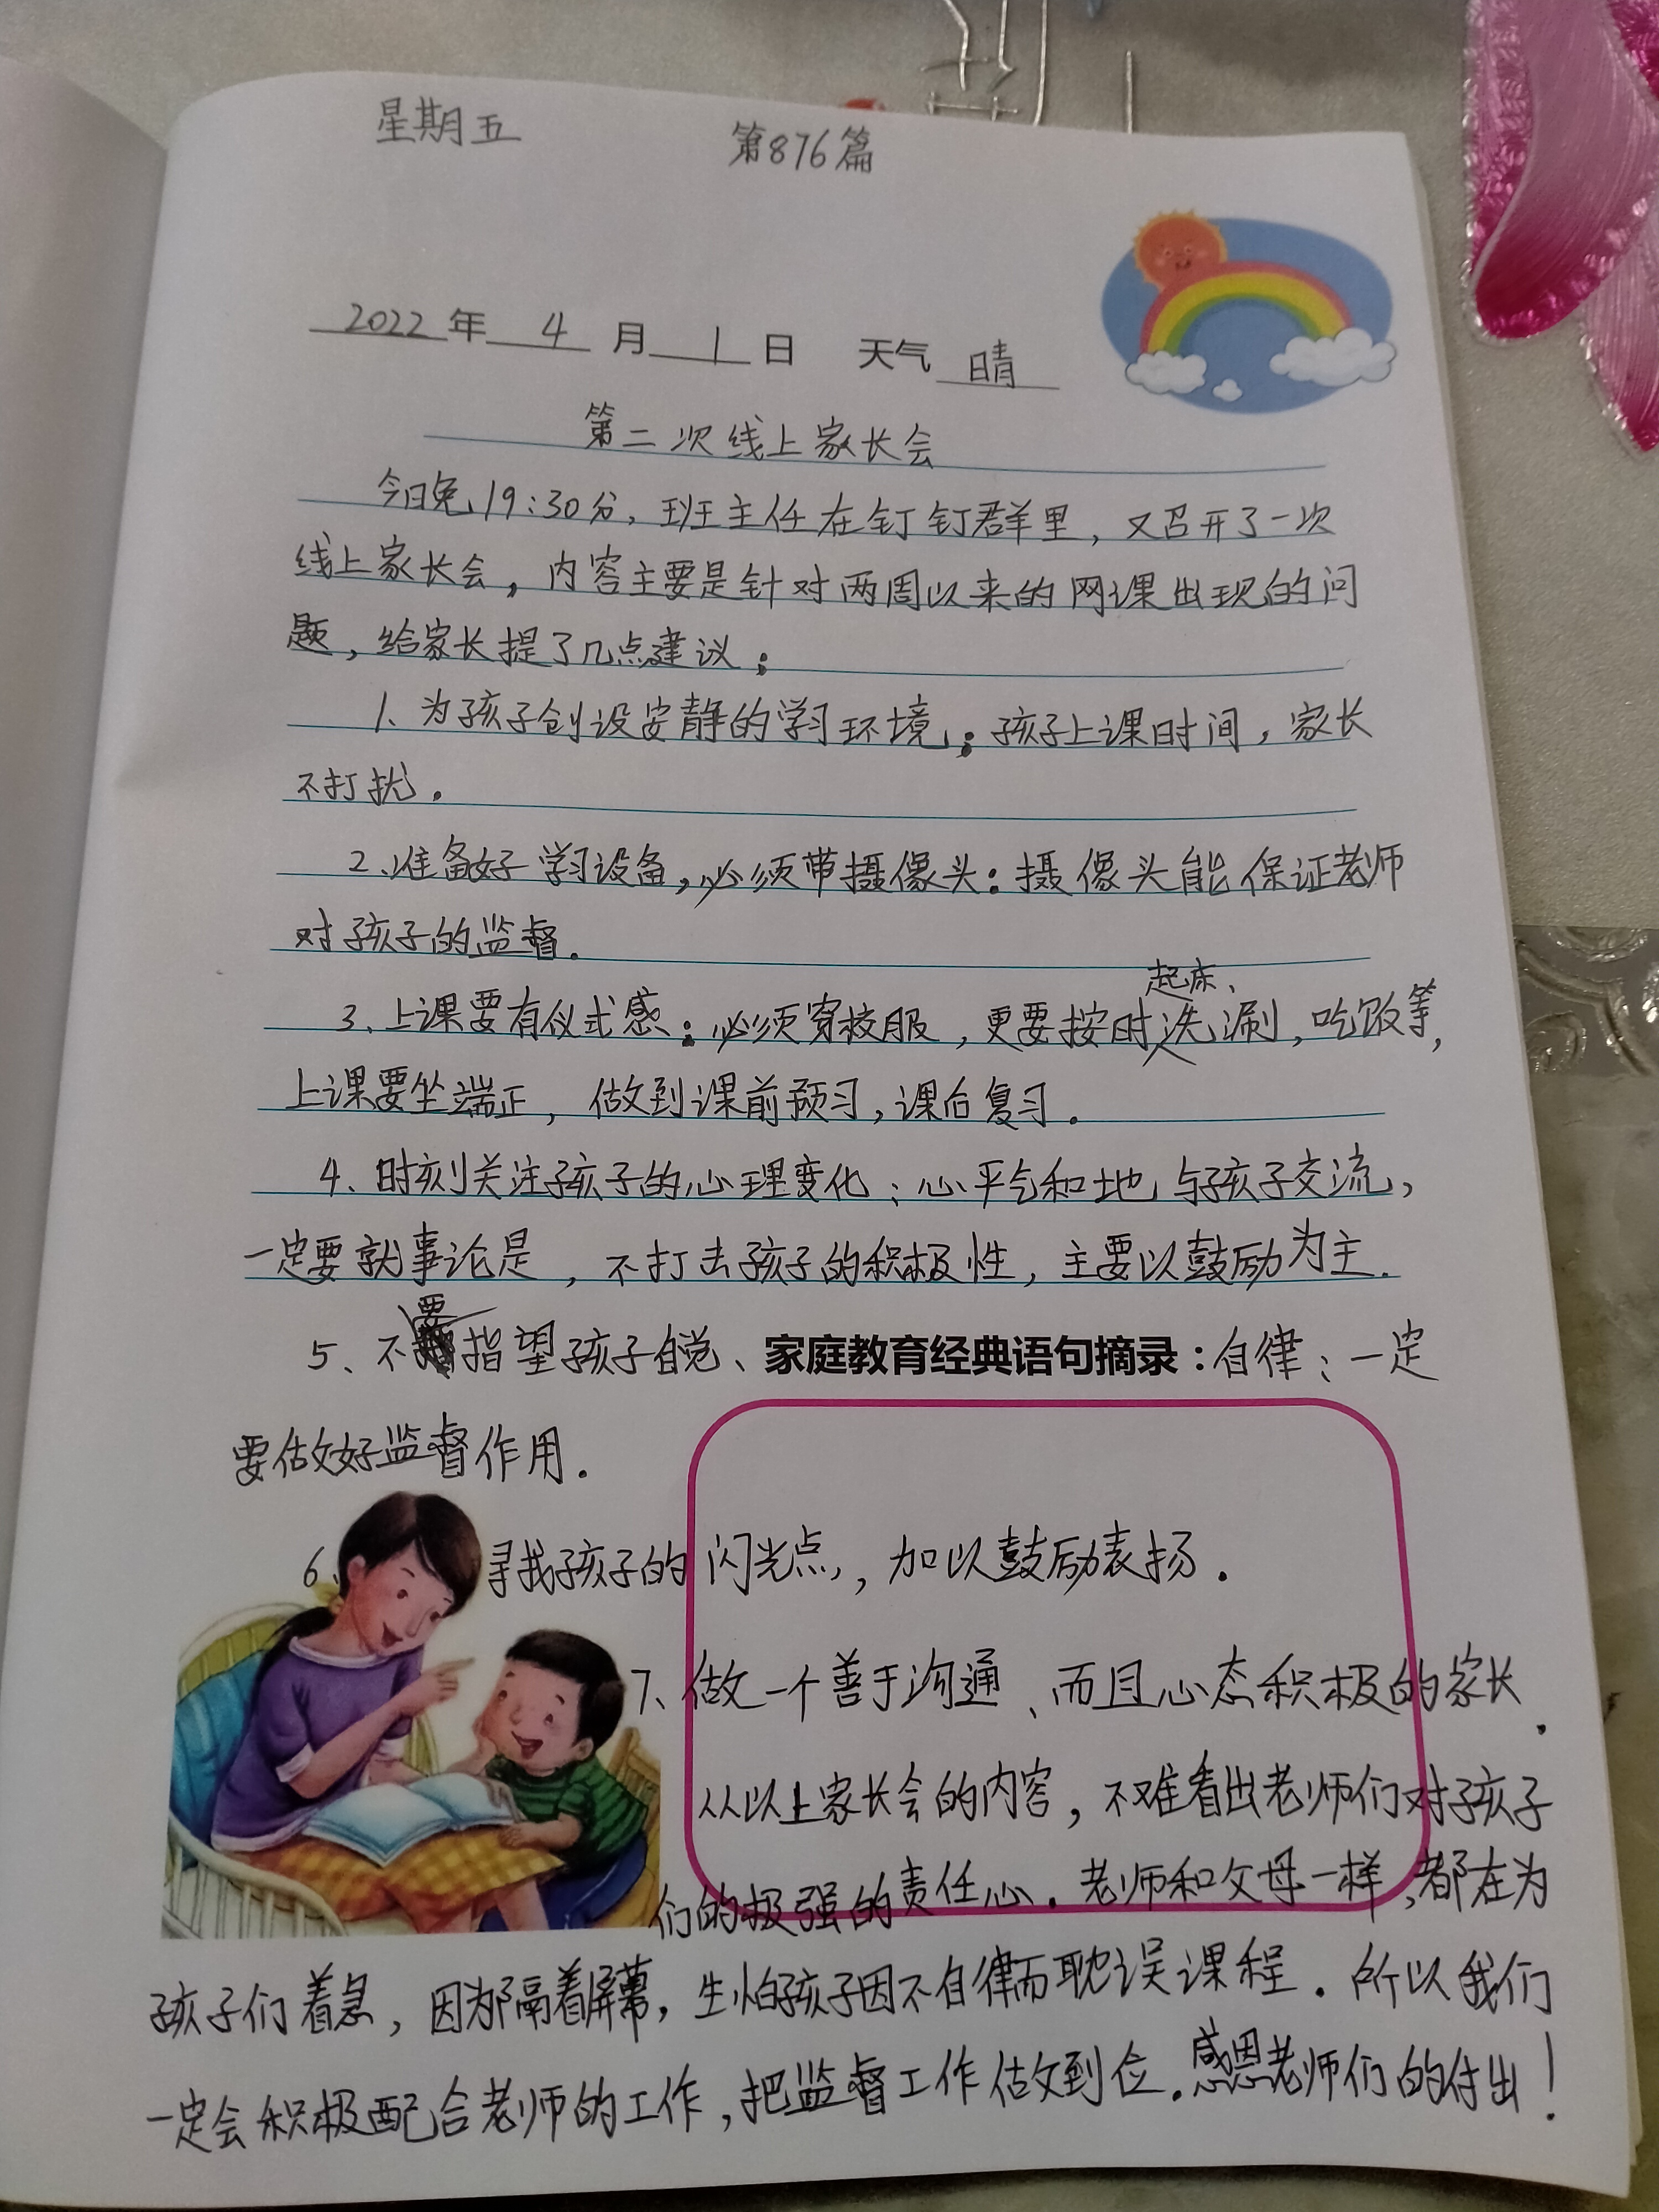 星期五 第876篇
2022年 4 月 1 日 天气 晴
第二次线上家长会
今日晚19:30分，班主任在钉钉群里，又召开了一次
线上家长会，内容主要是针对两周以来的网课出现的问
题，给家长提了几点建议：
1、为孩子创设安静的学习环境；孩子上课时间，家长
不打扰。
2、准备好学习设备，必须带摄像头：摄像头能保证老师
对孩子的监督.
起床、
3、上课要有仪式感：必须穿校服，更要按时洗涮，吃饭等，
上课要坐端正，做到课前预习，课后复习.
4、时刻关注孩子的心理变化；心平气和地与孩子交流，
一定要就事论是，不打击孩子的积极性，主要以鼓励为主.
要
5、不指望孩子自觉、家庭教育经典语句摘录：自律；一定
要做好监督作用.
6、寻找孩子的闪光点，加以鼓励表扬.
7、做一个善于沟通、而且心态积极的家长.
从以上家长会的内容，不难看出老师们对孩子
们的极强的责任心.老师和父母一样，都在为
孩子们着急，因为隔着屏幕，生怕孩子因不自律而耽误课程.所以我们
一定会积极配合老师的工作，把监督工作做到位.感恩老师们的付出！